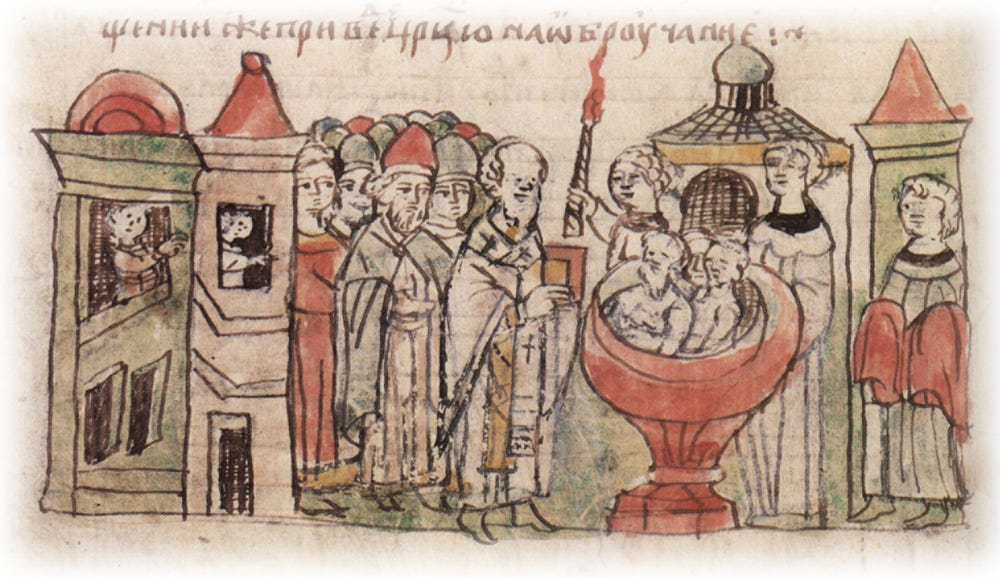 щении же приве црцю на ѡброучание :~